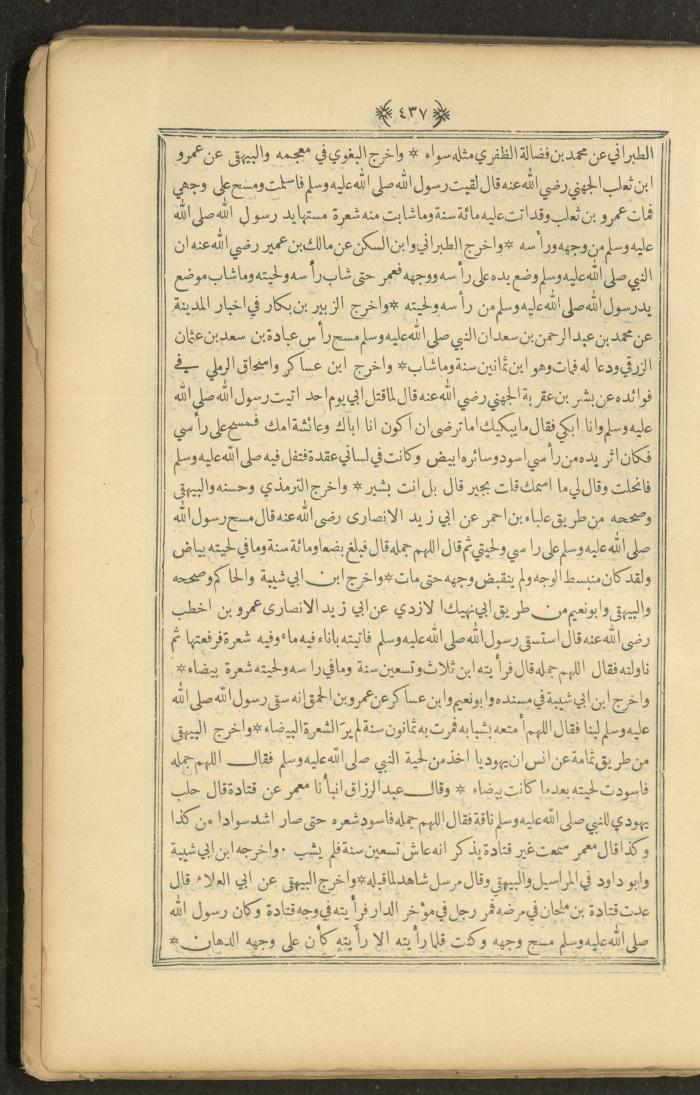 ٤٣٧
الطبراني عن محمد بن فضالة الظفري مثله سواء * واخرج البغوي في معجمه والبيهقى عن عمرو
ابن ثعلب الجهني رضي الله عنه قال لقيت رسول الله صلى الله عليه وسلم فاسلمت ومسح على وجهي
فمات عمرو بن ثعلب وقد اتت عليه مائة سنة وما شابت منه شعرة مستها يد رسول الله صلى الله
عليه وسلم من وجهه ورأسه * واخرج الطبراني وابن السكن عن مالك بن عمير رضي الله عنه ان
النبي صلى الله عليه وسلم وضع يده على رأسه ووجهه فعمر حتى شاب رأسه ولحيته وما شاب موضع
يد رسول الله صلى الله عليه وسلم من رأسه ولحيته * واخرج الزبير بن بكار في اخبار المدينة
عن محمد بن عبد الرحمن بن سعد ان النبي صلى الله عليه وسلم مسح رأس عبادة بن سعد بن عثمان
الزرقي ودعا له فمات وهو ابن ثمانين سنة وما شاب * واخرج ابن عساكر واسحاق الرملي في
فوائده عن بشر بن عقربة الجهني رضي الله عنه قال لما قتل ابي يوم احد اتيت رسول الله صلى الله
عليه وسلم وانا ابكي فقال ما يبكيك اما ترضى ان اكون انا اباك وعائشة امك فمسح على رأسي
فكان اثر يده من رأسي اسود وسائره ابيض وكانت في لساني عقدة فتفل فيه صلى الله عليه وسلم
فانحلت وقال لي ما اسمك قلت بجير قال بل انت بشير * واخرج الترمذي وحسنه والبيهقى
وصححه من طريق علباء بن احمر عن ابي زيد الانصارى رضى الله عنه قال مسح رسول الله
صلى الله عليه وسلم على راسي ولحيتي ثم قال اللهم جمله قال فبلغ بضعا ومائة سنة وما في لحيته بياض
ولقد كان منبسط الوجه ولم ينقبض وجهه حتى مات * واخرج ابن ابي شيبة والحاكم وصححه
والبيهقى وابو نعيم من طريق ابي نهيك الازدي عن ابي زيد الانصارى عمرو بن اخطب
رضى الله عنه قال استسقى رسول الله صلى الله عليه وسلم فاتيته باناء فيه ماء وفيه شعرة فرفعتها ثم
ناولته فقال اللهم جمله قال فرأيته ابن ثلاث وتسعين سنة وما في راسه ولحيته شعرة بيضاء *
واخرج ابن ابي شيبة في مسنده وابو نعيم وابن عساكر عن عمرو بن الحمق انه سقى رسول الله صلى الله
عليه وسلم لبنا فقال اللهم أمتعه بشبابه فمرت به ثمانون سنة لم ير الشعرة البيضاء * واخرج البيهقي
من طريق ثمامة عن انس ان يهوديا اخذ من لحية النبي صلى الله عليه وسلم فقال اللهم جمله
فاسودت لحيته بعد ما كانت بيضاء * وقال عبد الرزاق انبأنا معمر عن قتادة قال حلب
يهودي للنبي صلى الله عليه وسلم ناقة فقال اللهم جمله فاسود شعره حتى صار اشد سوادا من كذا
وكذا قال معمر سمعت غير قتادة يذكر انه عاش تسعين سنة فلم يشب . واخرجه ابن ابي شيبة
وابو داود في المراسيل والبيهقي وقال مرسل شاهد لما قبله * واخرج البيهقى عن ابي العلاء قال
عدت قتادة بن ملحان في مرضه فمر رجل في مؤخر الدار فرأيته في وجه قتادة وكان رسول الله
صلى الله عليه وسلم مسح وجهه وكنت قلما رأيته الا رأيته كأن على وجهه الدهان *